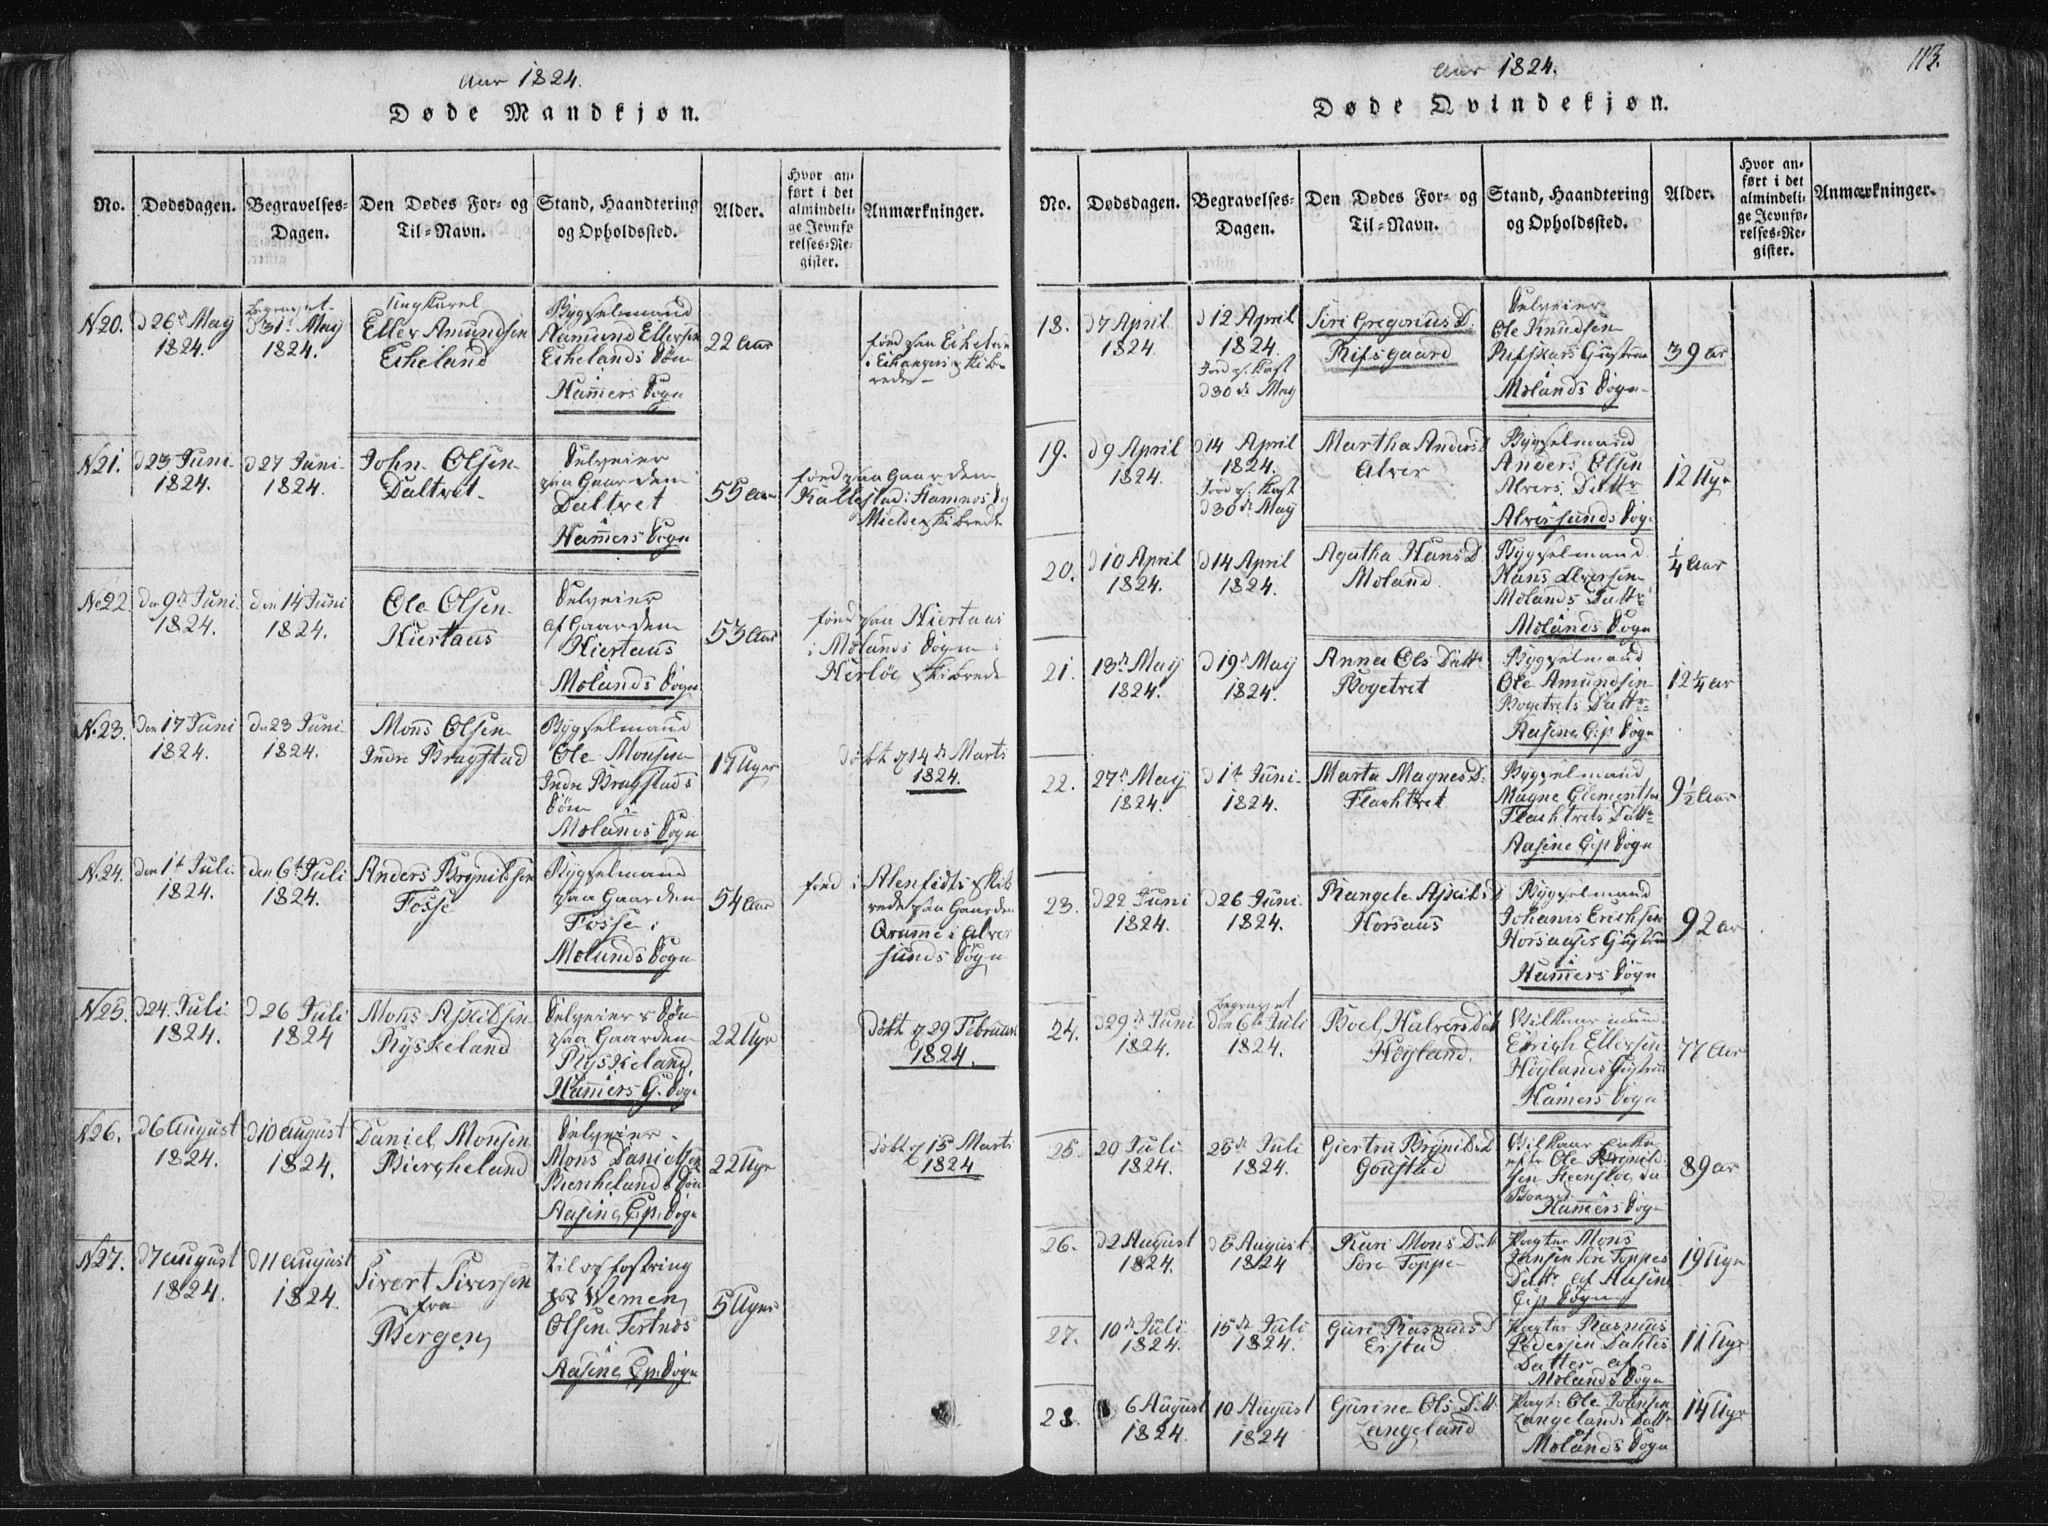 Aar 1824.
Døde Mandkjøn.
No.
Dødsdagen.
Begravelses-
Dagen.
Den Dødes For- og
Til-Navn.
Stand, Haandtering
og Opholdssted.
Alder.
Hvor an-
ført i det
almindeli-
ge Jevnfø-
relses-Re-
gister.
Anmærkninger.
N20.
d 26de May
1824.
begravet
d 31te May
1824.
Ungkarel
Eller Amundsen
Eikeland
Bygselmand
Aamund Ellersen
Eikelands Søn
Hamers Sogn
22 Aar
fød paa Eikeland
i Eikanger Skib-
rede
N21.
d 23 Juni
1824.
d 27 Juni
1824.
John Olsen
Daltvet
Selveier
paa Gaarden
Daltvet
i
Hamers Sogn
55 Aar
fød paa Gaarden
i Hamers Sog
Mielde Skibrede
No 22
den 9de Juni
1824.
den 14 Juni
1824.
Ole Olsen
Hiertaas
Selveier
af Gaarden
Hiertaas
Molands Sogn
53 Aar
fød paa Hiertaas
i Molands Sogn i
Herløe Skibrede
N.23.
den 17 Juni
1824.
den 23 Juni
1824.
Mons Olsen
Indre Bragstad
Bygselmand
Ole Monsen
Indre Bragstads
Søn i
Molands Sogn
17 Uger
døbt d 14de Marts
1824.
N.24.
den 1te Juli
1824.
den 6te Juli
1824.
Anders Brynildsen
Fosse
Bygselmand
paa Gaarden
Fosse i
Molands Sogn
54 Aar
fød i Alenfidts Skib
rede paa Gaarden
Qvamme i Alver
sunds Sogn
N25.
d 24. Juli
1824.
d 26 Juli
1824
Mons Askildsen
Ryskeland
Selveiers Søn
paa Gaarden
Ryskeland
Hamers G. Sogn
22 Uger
døbt d 29 Februar
1824.
N26.
d 6 August
1824.
d 10 August
1824.
Daniel Monsen
Biergheland
Selveier
Mons Danielsen
Bienhelands Søn
Aasine Gp. Sogn
22 Uger
døbt d 15 Marts
1824
N27.
d 7 August
1824.
d 11 August
1824.
Sivert Siversen
fra
Bergen
til opfostring
hos Nemen
Olsen Tertnes
Aasine Gp. Sogn
5 Uger
Aar 1824.
113.
Døde Qvindekjøn.
No.
Dødsdagen.
Begravelses-
Dagen.
Den Dødes For- og
Til-Navn.
Stand, Haandtering
og Opholdssted.
Alder.
Hvor an-
ført i det
almindeli-
ge Jevnfø-
relses-Re-
gister.
Anmærkninger.
18.
d 7 April
1824.
d 12 April
1824.
Jord p. Kast
d 30de May
Siri Gregorius D.
Rifsgaard
Selveier
Ole Knudsen
Hustrue
Molands Sogn
39 ar
19.
d 9 April
1824.
d 14 April
1824.
Jord p. Kast
d 30de May
Martha Anders D
Alver
Bygselmand
Anders Olsen
Alvers Datter
Alversunds Sogn
12 Uger
20.
d 10 April
1824.
d 14 April
1824.
Agatha Hans D
Moland.
Bygselmand
Hans Iversen
Molands Datter
Molands Sogn
1/4 Aar
21.
13de May
1824.
d 19de May
1824.
Anna Ols Datter
Bogetvet
Bygselmand
Ole Amundsen
Bogetvets Datter
Aasine Gp. Sogn
12 1/4 ar
22.
27de May
1824.
d 1te Juni
1824.
Marta Magnes D.
Flachtvet
Bygselmand
Magne Clementsen
Flachtvets Datter
Aasine Gp. Sogn
9 1/2 Aar
23.
d 22 Juni
1824.
d 26 Juni
1824.
Rangele Askils D
Horsaas
Bygselmand
Johanis Erichsen
Horsaases Hustrue
i
Hamers Sogn
92 ar
24.
d 29de Juni
1824.
begravet
den 6te Juli
1824.
Boel Halvers Dat
Høyland.
Vilkaarmand
Erich Ellersen
Høylands Hustrue
Hamers Sogn
77 Aar
25.
20 Juli
1824.
25de Juli
1824.
Giertru Brynilds D
Goustad
Vilkaar enke
efter Ole Brynild-
sen
Hamers Sogn
89 ar
26.
d 2 August
1824.
d 6 August
1824
Kari Mons Datt
Søre Toppe
Pagter Mons
Jansen Søre Toppes
Datter af Aasine
Gp. Sogn
19 Uger
27.
10de Juli
1824.
15de Juli
1824.
Guri Rasmus D
Erstad
Pagter Rasmus
Pedersen Dahles
Datter af
Molands Sogn
11 Uger
28.
6 August
1824.
10 August
1824
Gurine Ols Datt.
Langeland
Pagt: Ole Johnsen
Langelands Datter
af
Molands Sogn
14 Uger